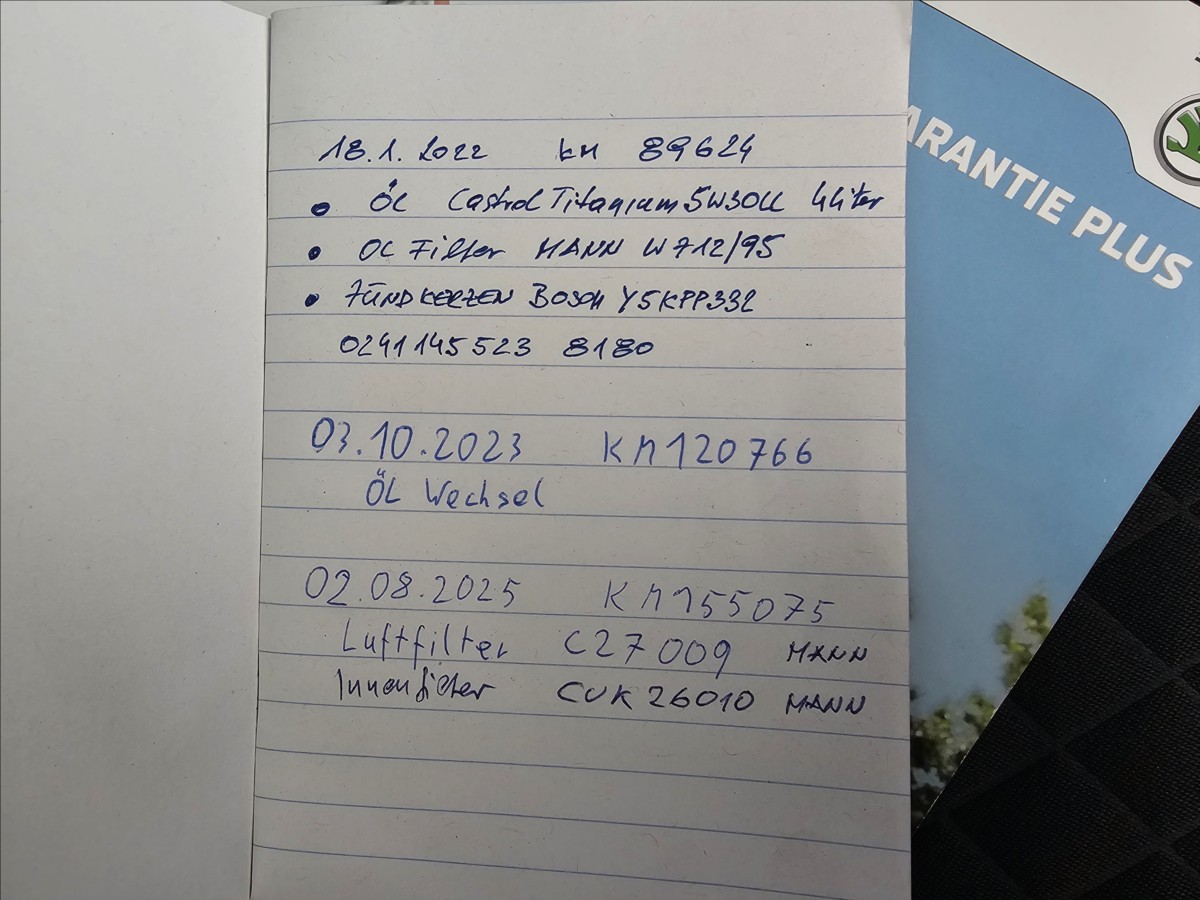 18.1.2022 km 89624
• Öl Castrol Titanium 5W30LL 4 Liter
• Ol Filter MANN W712/95
• ZÜNDKERZEN Bosch Y5KPP332
0241145523 8180
03.10.2023 KM 120766
ÖL Wechsel
02.08.2025 KM 155075
Luftfilter C27009 MANN
Innenfilter CUK 26010 MANN
ARANTIE PLUS